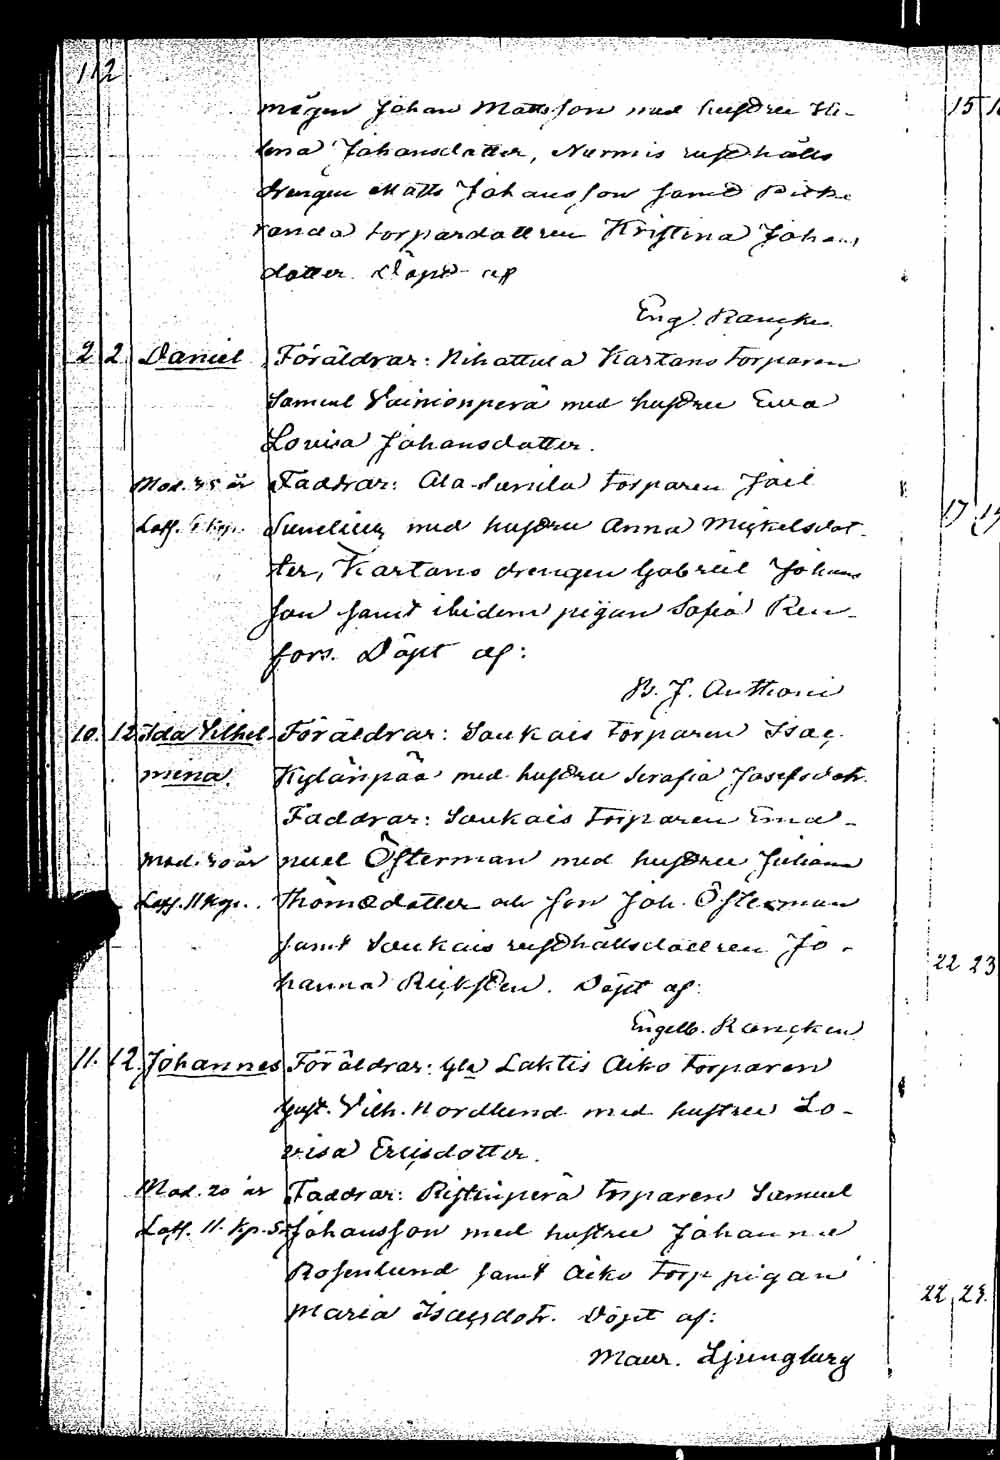 112
mågen Johan Mattsson med hustru He-
lena Johansdotter, Nurmis rusthålls
drengen Matts Johansson samt
randa torpardottren Kristina Johans
dotter. Döpt af
Eng. Rancken
2 2 Daniel Föräldrar: Nihattula Kartano torparen
Samuel Vainionperä med hustru Eva
Lovisa Johansdotter.
Mod. 35 år Faddrar: Ala-Sunila torparen Joel
Lutf. Kyr. Sunelius med hustru Anna Mickelsdot-
ter, Kartano drengen Gabriel Johans
son samt ibidem pigan Sofia Ren-
fors. Döpt af:
B. J. Anthoni
10. 12 Ida Vilhel- Föräldrar: Saukais torparen Isac
mina. Kylänpää med hustru Serafia Josefsdotr.
Faddrar: Saukais torparen Ema-
Mod. 30 år nuel Österman med hustru Juliana
11 Thomædotter och son Joh. Österman
samt Saukais rusthållsdottren Jo-
hanna. Döpt af:
Engelb. Rancken
11. 12. Johannes Föräldrar: Gla Laktis Aiko torparen
Gust. Vilh. Nordlund med hustru Lo-
visa Ericsdotter.
Mod. 20 år Faddrar: Ristinperä torparen Samuel
11. Johansson med hustru Johanna
Rosenlund samt Aiko torp pigan
Maria Isacsdotr. Döpt af:
Maur. Ljungberg
15
17
22 23
22 23.